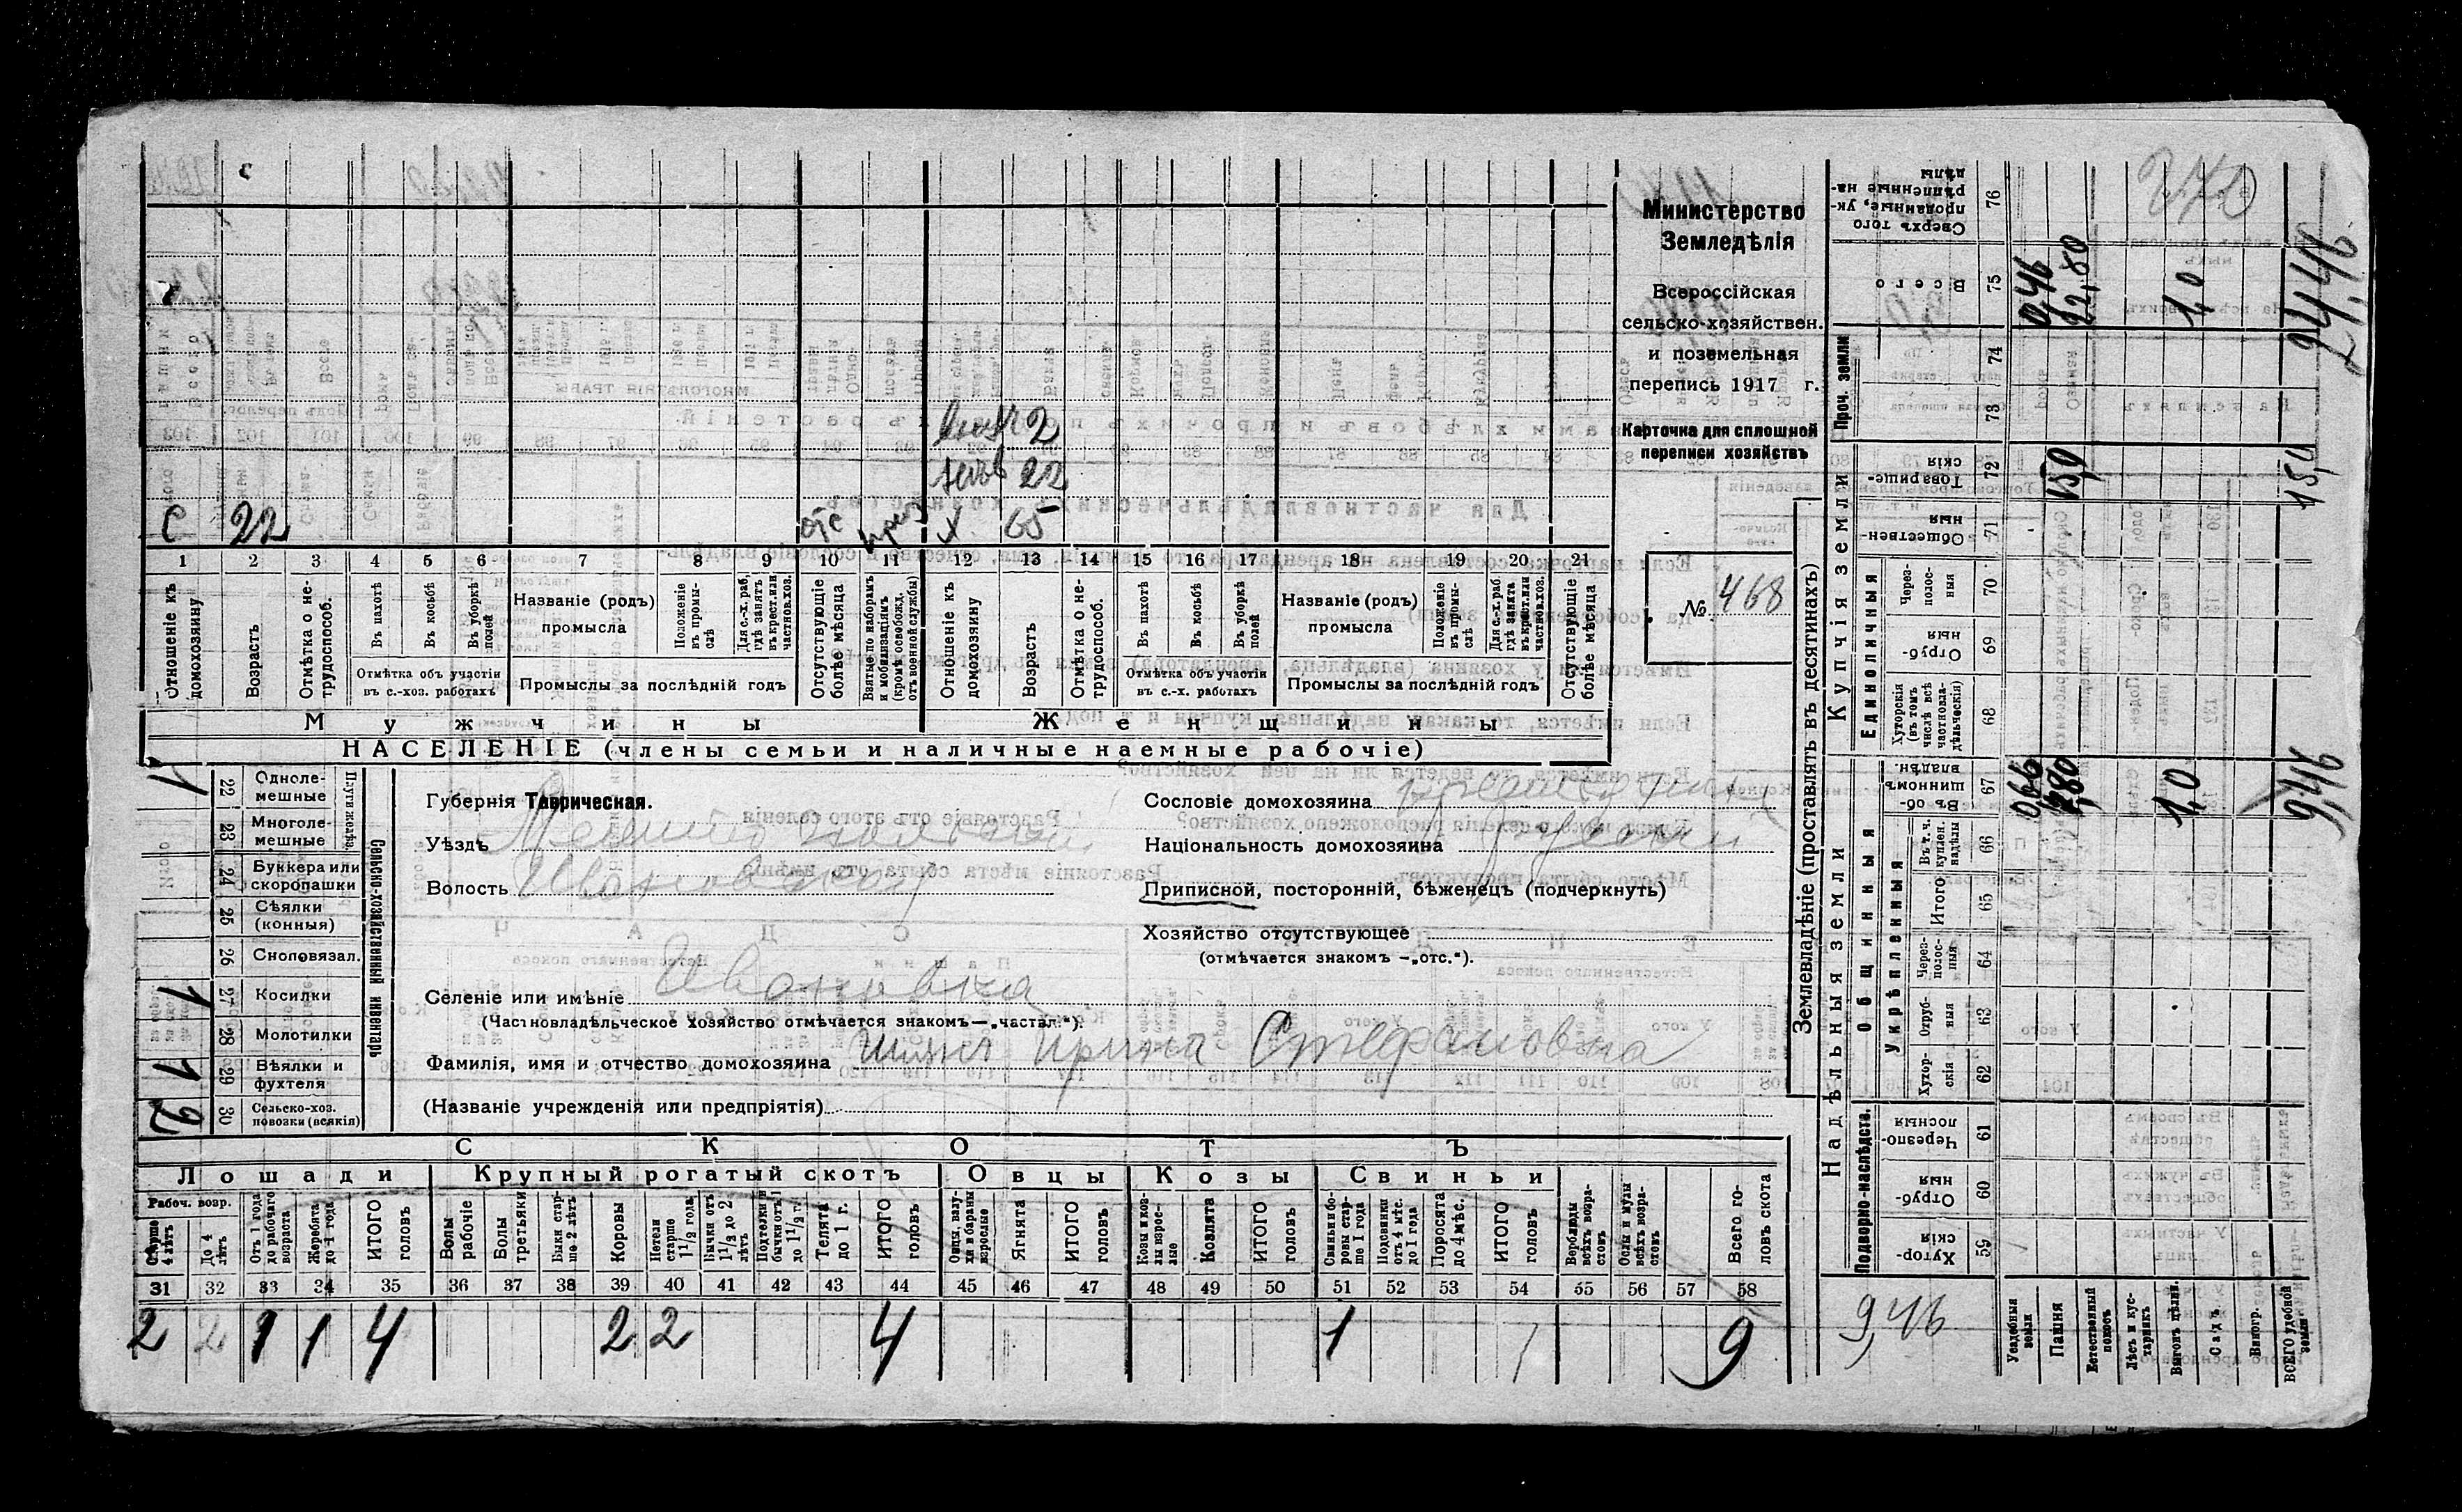 Министерство
Земледѣлія
Всероссійская
сельско-хозяйствен.
и поземельная
перепись 1917 г.
Карточка для сплошной
переписи хозяйствъ
№ 468
С 22 отс
внучк 2
невѣ 22
х. 65
1 2 3 4 5 6 7 8 9 10 11 12 13 14 15 16 17 18 19 20 21
Отношеніе къ домохозяину
Возрастъ
Отмѣтка о не-трудоспособ.
Въ пахотѣ
Въ косьбѣ
Въ уборкѣ полей
Отмѣтка объ участіи въ с.-хоз. работахъ
Названіе (родъ) промысла
Положеніе въ промы-слѣ
Для с.-х. раб, гдѣ занятъ въ крест. или частнов. хоз.
Промыслы за послѣдній годъ
Отсутствующіе болѣе мѣсяца
Взятые по наборамъ и мобилизаціямъ (кромѣ освобожд. отъ военной службы)
Отношеніе къ домохозяину
Возрастъ
Отмѣтка о не-трудоспособ.
Въ пахотѣ
Въ косьбѣ
Въ уборкѣ полей
Отмѣтка объ участіи въ с.-х. работахъ
Названіе (родъ) промысла
Положеніе въ промы-слѣ
Для с.-х. раб. гдѣ занята въ крест. или частнов. хоз.
Промыслы за послѣдній годъ
Отсутствующіе болѣе мѣсяца
Мужчины Женщины
НАСЕЛЕНІЕ (члены семьи и наличные наемные рабочіе)
Сельско-хозяйственный инвентарь
Плуги желѣз.
22 Однолемешные 1
23 Многолемешные
24 Буккера или скоропашки
25 Сѣялки (конныя)
26 Сноповязал.
27 Косилки 1
28 Молотилки
29 Вѣялки и фухтеля 1
30 Сельско-хоз. повозки (всякія) 2
Губернія Таврическая.
Уѣздъ Мелитопольскій
Волость Ивановская
Селеніе или имѣніе Ивановка
(Частновладѣльческое хозяйство отмѣчается знакомъ—„частвл.“).
Фамилія, имя и отчество домохозяина Ирина Стефановна
(Названіе учрежденія или предпріятія)
Сословіе домохозяина крестьянка
Національность домохозяина Русскій
Приписной, посторонній, бѣженецъ (подчеркнуть)
Хозяйство отсутствующее
(отмѣчается знакомъ —„отс.“).
СКОТЪ
Лошади Крупный рогатый скотъ Овцы Козы Свиньи
Рабоч. возр.
Старше 4 лѣтъ
До 4 лѣтъ
Отъ 1 года до рабочаго возраста
Жеребята до 1 года
ИТОГО головъ
Волы рабочіе
Волы третьяки
Быки старше 2 лѣтъ
Коровы
Нетели старше 1 1/2 года
Бычки отъ 1 1/2 до 2 лѣтъ
Подтелки и бычки отъ 1 до 1 1/2 г.
Телята до 1 г.
ИТОГО головъ
Овцы, валухи и бараны взрослые
Ягнята
ИТОГО головъ
Козы и козлы взрослые
Козлята
ИТОГО головъ
Свиньи боровы старше 1 года
Подсвинки отъ 4 мѣс. до 1 года
Поросята до 4 мѣс.
ИТОГО головъ
Верблюды всѣхъ возрастовъ
Ослы и мулы всѣхъ возрастовъ
Всего головъ скота
31 32 33 34 35 36 37 38 39 40 41 42 43 44 45 46 47 48 49 50 51 52 53 54 55 56 57 58
2 2 1 1 4 2 2 4 1 1 9
Землевладѣніе (проставлять въ десятинахъ)
Сверхъ того проданные, укрѣпленные надѣлы 76
Всего 75
Проч. земли 74 73
Купчія земли
Товарищескія 72
Общественныя 71
Единоличныя
Черезполосныя 70
Отрубныя 69
Хуторскія (въ томъ числѣ всѣ частновладѣльческія) 68
Надѣльныя земли
Общинныя
Въ общинномъ владѣн. 67
Укрѣпленныя
Въ т. ч. куплен. надѣлы 66
Итого 65
Черезполосныя 64
Отрубныя 63
Хуторскія 62
Подворно-наслѣдств.
Черезполосныя 61
Отрубныя 60
Хуторскія 59
Усадебныя земли
Пашня
Естественный покосъ
Лѣсъ и кустарникъ
Выгонъ цѣлин.
Садъ
Виногр.
ВСЕГО удобной земли
22,80
1,0
24,46
15,0
15,0
7,80
1,0
9,46
9,46
270